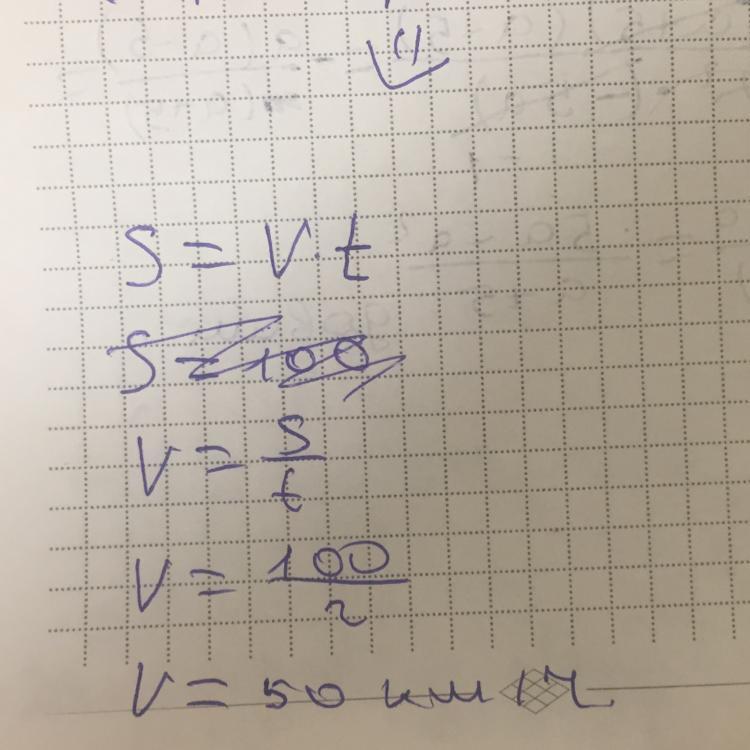 S = V · t
S = 100
V = S/t
V = 100/2
V = 50 км/ч